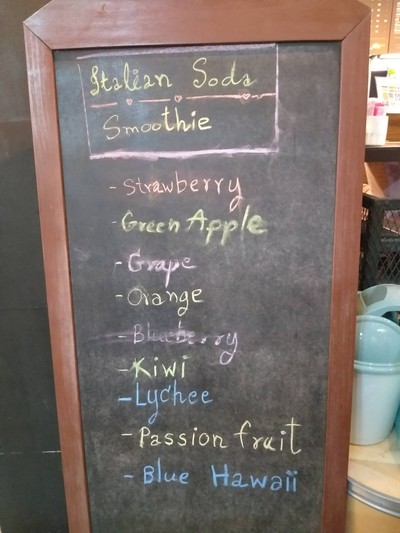 Italian Soda
Smoothie
- Strawberry
- Green Apple
- Grape
- Orange
- Blueberry
- Kiwi
- Lychee
- Passion fruit
- Blue Hawaii